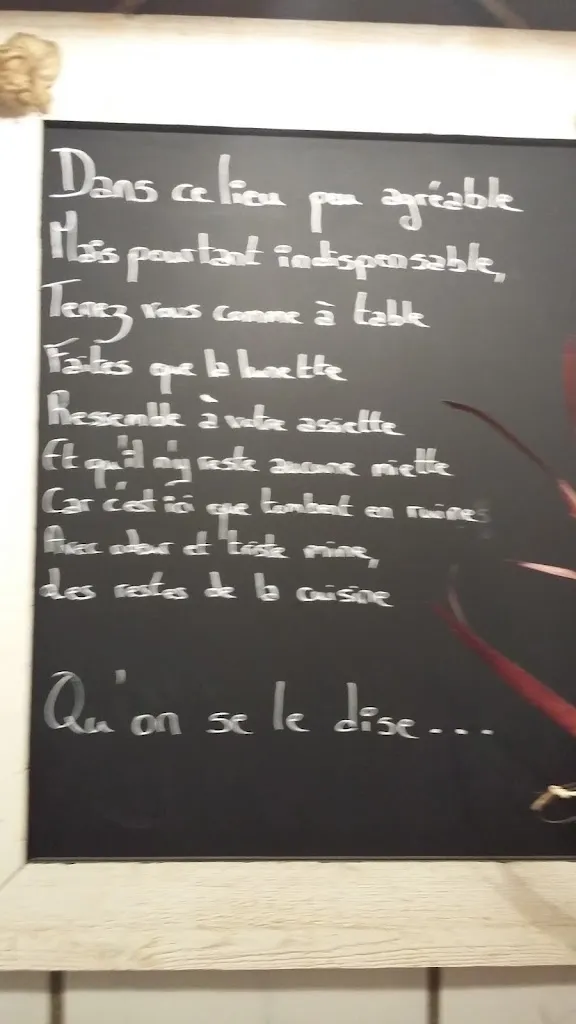 Dans ce lieu peu agréable
Mais pourtant indispensable,
Tenez vous comme à table
Faites que la lunette
Ressemble à votre assiette
Et qu'il n'y reste aucune miette
Car c'est ici que tombent en ruines
Avec odeur et triste mine,
Les restes de la cuisine
Qu'on se le dise...